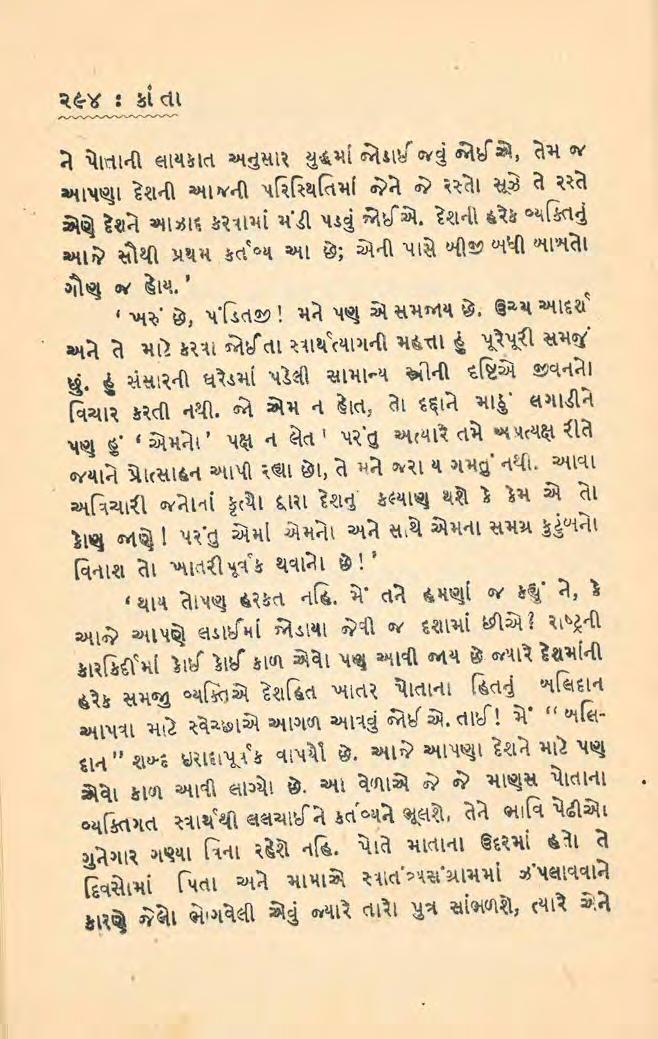 ૨૯૪ : કાંતા
ને પોતાની લાયકાત અનુસાર યુદ્ધમાં જોડાઈ જવું જોઈએ, તેમ જ
આપણા દેશની આજની પરિસ્થિતિમાં જેને જે રસ્તો સૂઝે તે રસ્તે
એણે દેશને આઝાદ કરવામાં મંડી પડવું જોઈએ. દેશની હરેક વ્યક્તિનું
આજે સૌથી પ્રથમ કર્તવ્ય આ છે; એની પાસે બીજી બધી બાબતો
ગૌણ જ હોય.’
‘ ખરું છે, પંડિતજી! મને પણ એ સમજાય છે. ઉચ્ચ આદર્શ
અને તે માટે કરવા જોઈતા સ્વાર્થત્યાગની મહત્તા હું પૂરેપૂરી સમજું
છું. હું સંસારની ઘરેડમાં પડેલી સામાન્ય સ્ત્રીની દૃષ્ટિએ જીવનનો
વિચાર કરતી નથી. જો એમ ન હોત, તો દદ્દાને માઠું લગાડીને
પણ હું ‘ એમનો’ પક્ષ ન લેત ' પરંતુ અત્યારે તમે અપ્રત્યક્ષ રીતે
જયાને પ્રોત્સાહન આપી રહ્યા છો, તે મને જરા ય ગમતું નથી. આવા
અવિચારી જનોનાં કૃત્યો દ્વારા દેશનું કલ્યાણ થશે કે કેમ એ તો
કોણ જાણે! પરંતુ એમાં એમનો અને સાથે એમના સમગ્ર કુટુંબનો
વિનાશ તો ખાતરીપૂર્વક થવાનો છે!’
‘થાય તોપણ હરકત નહિ. મેં તને હમણાં જ કહ્યું ને, કે
આજે આપણે લડાઈમાં જોડાયા જેવી જ દશામાં છીએ? રાષ્ટ્રની
કારકિર્દીમાં કોઈ કોઈ કાળ એવો પણ આવી જાય છે જ્યારે દેશમાંની
હરેક સમજુ વ્યક્તિએ દેશહિત ખાતર પોતાના હિતનું બલિદાન
આપવા માટે સ્વેચ્છાએ આગળ આવવું જોઈએ. તાઈ! મેં “બલિ-
દાન” શબ્દ ઇરાદાપૂર્વક વાપર્યો છે. આજે આપણા દેશને માટે પણ
એવો કાળ આવી લાગ્યો છે. આ વેળાએ જે જે માણસ પોતાના
વ્યક્તિગત સ્વાર્થથી લલચાઈને કર્તવ્યને ભૂલશે, તેને ભાવિ પેઢીઓ
ગુનેગાર ગણ્યા વિના રહેશે નહિ. પોતે માતાના ઉદરમાં હતો તે
દિવસોમાં પિતા અને મામાએ સ્વાતંત્ર્યસંગ્રામમાં ઝંપલાવવાને
કારણે જેલો ભોગવેલી એવું જ્યારે તારો પુત્ર સાંભળશે, ત્યારે એને